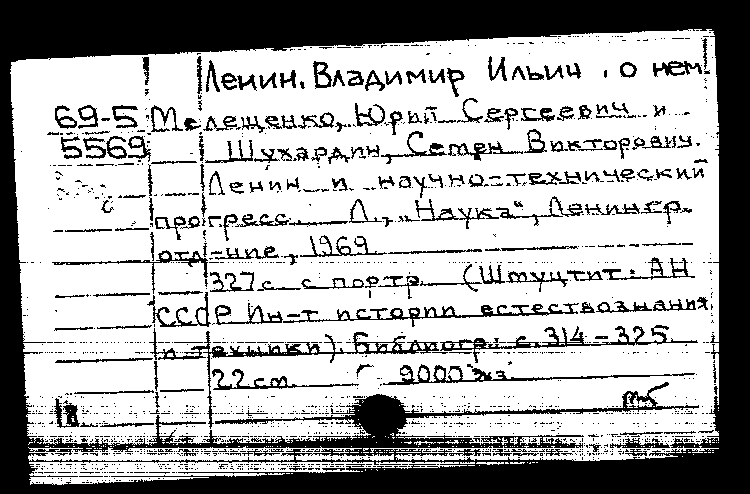 Ленин, Владимир Ильич, о нем
69-5 Мелещенко, Юрий Сергеевич и
5569 Шухардин, Семен Викторович.
Ленин и научно-технический
прогресс. Л., „Наука“, Ленингр.
отд-ние, 1969.
327 с. с портр. (Шмуцтит.: АН
СССР Ин-т истории естествознания
и техники). Библиогр.: с. 314-325.
22 см. 9000 экз.
18